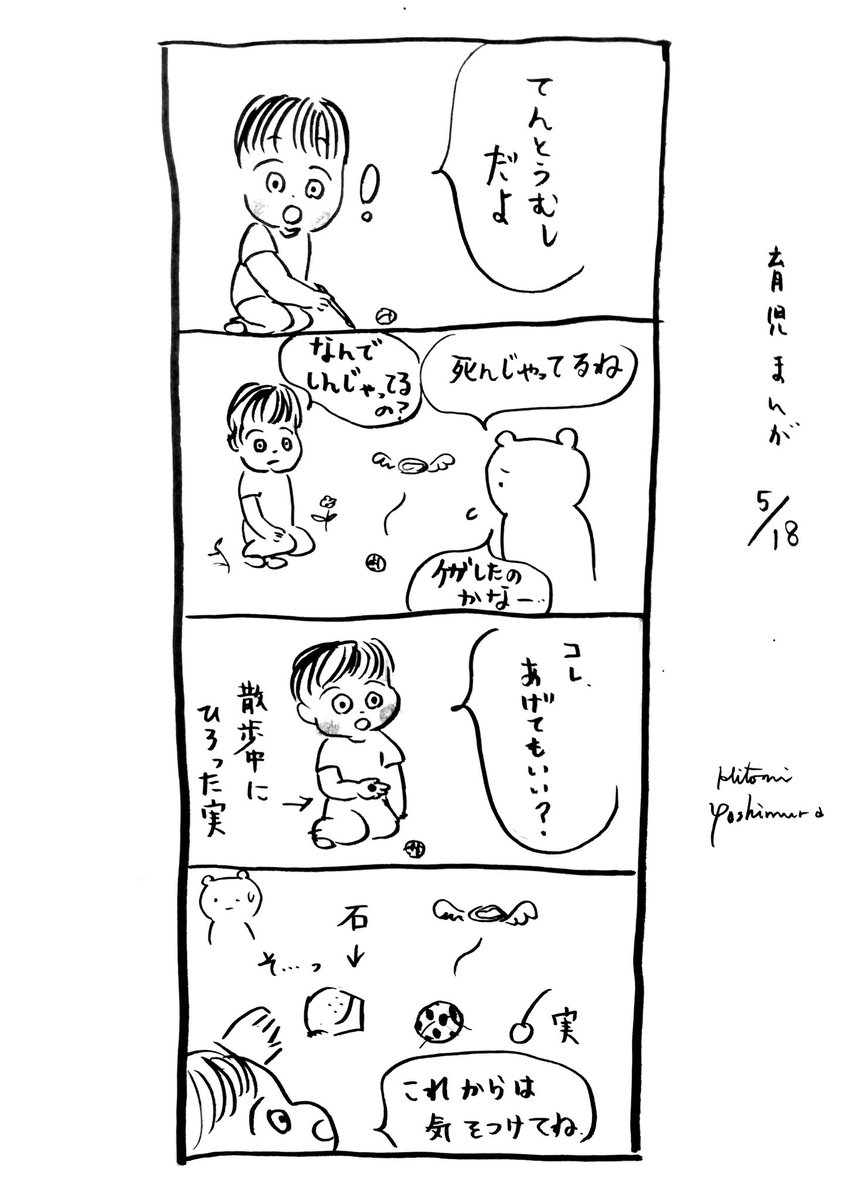 育児まんが
5/18
Hitomi
Yoshimura
てんとうむし
だよ
!
死んじゃってるね
なんで
しんじゃってる
の?
ケガしたの
かなー…
コレ、
あげてもいい?
散歩中に
ひろった実
石
そ…っ
実
これからは
気をつけてね